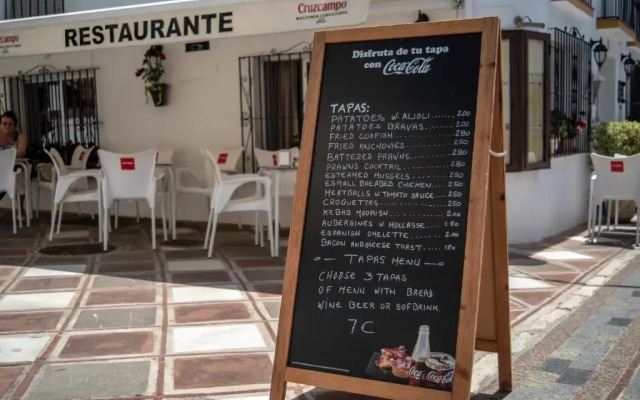 Cruzcampo
RESTAURANTE
Cruzcampo
MAESTROS CERVECEROS
Disfruta de tu tapa
con Coca-Cola
TAPAS:
PATATOES W ALIOLI.... 200
PATATOES BRAVAS........ 200
FRIED CODFISH.......... 280
FRIED ANCHOVIES........ 250
BATTERED PRAWNS........ 280
PRAWNS COCKTAIL........ 280
ESTEAMED MUSSELS....... 250
ESMALL BREADED CHICKEN.... 250
MEATBALLS W TOMATOES.... 250
CROQUETTES............. 250
KEBAB MOORISH.......... 200
AUBERGINES W MOLLASSE... 180
ESPANISH OMELETTE...... 200
BACON AND HEESE TOAST.... 180
- TAPAS MENU -
CHOOSE 3 TAPAS
OF MENU WITH BREAD
WINE BEER OR SOFDRINK.
7 C
Coca-Cola
Coca-Cola